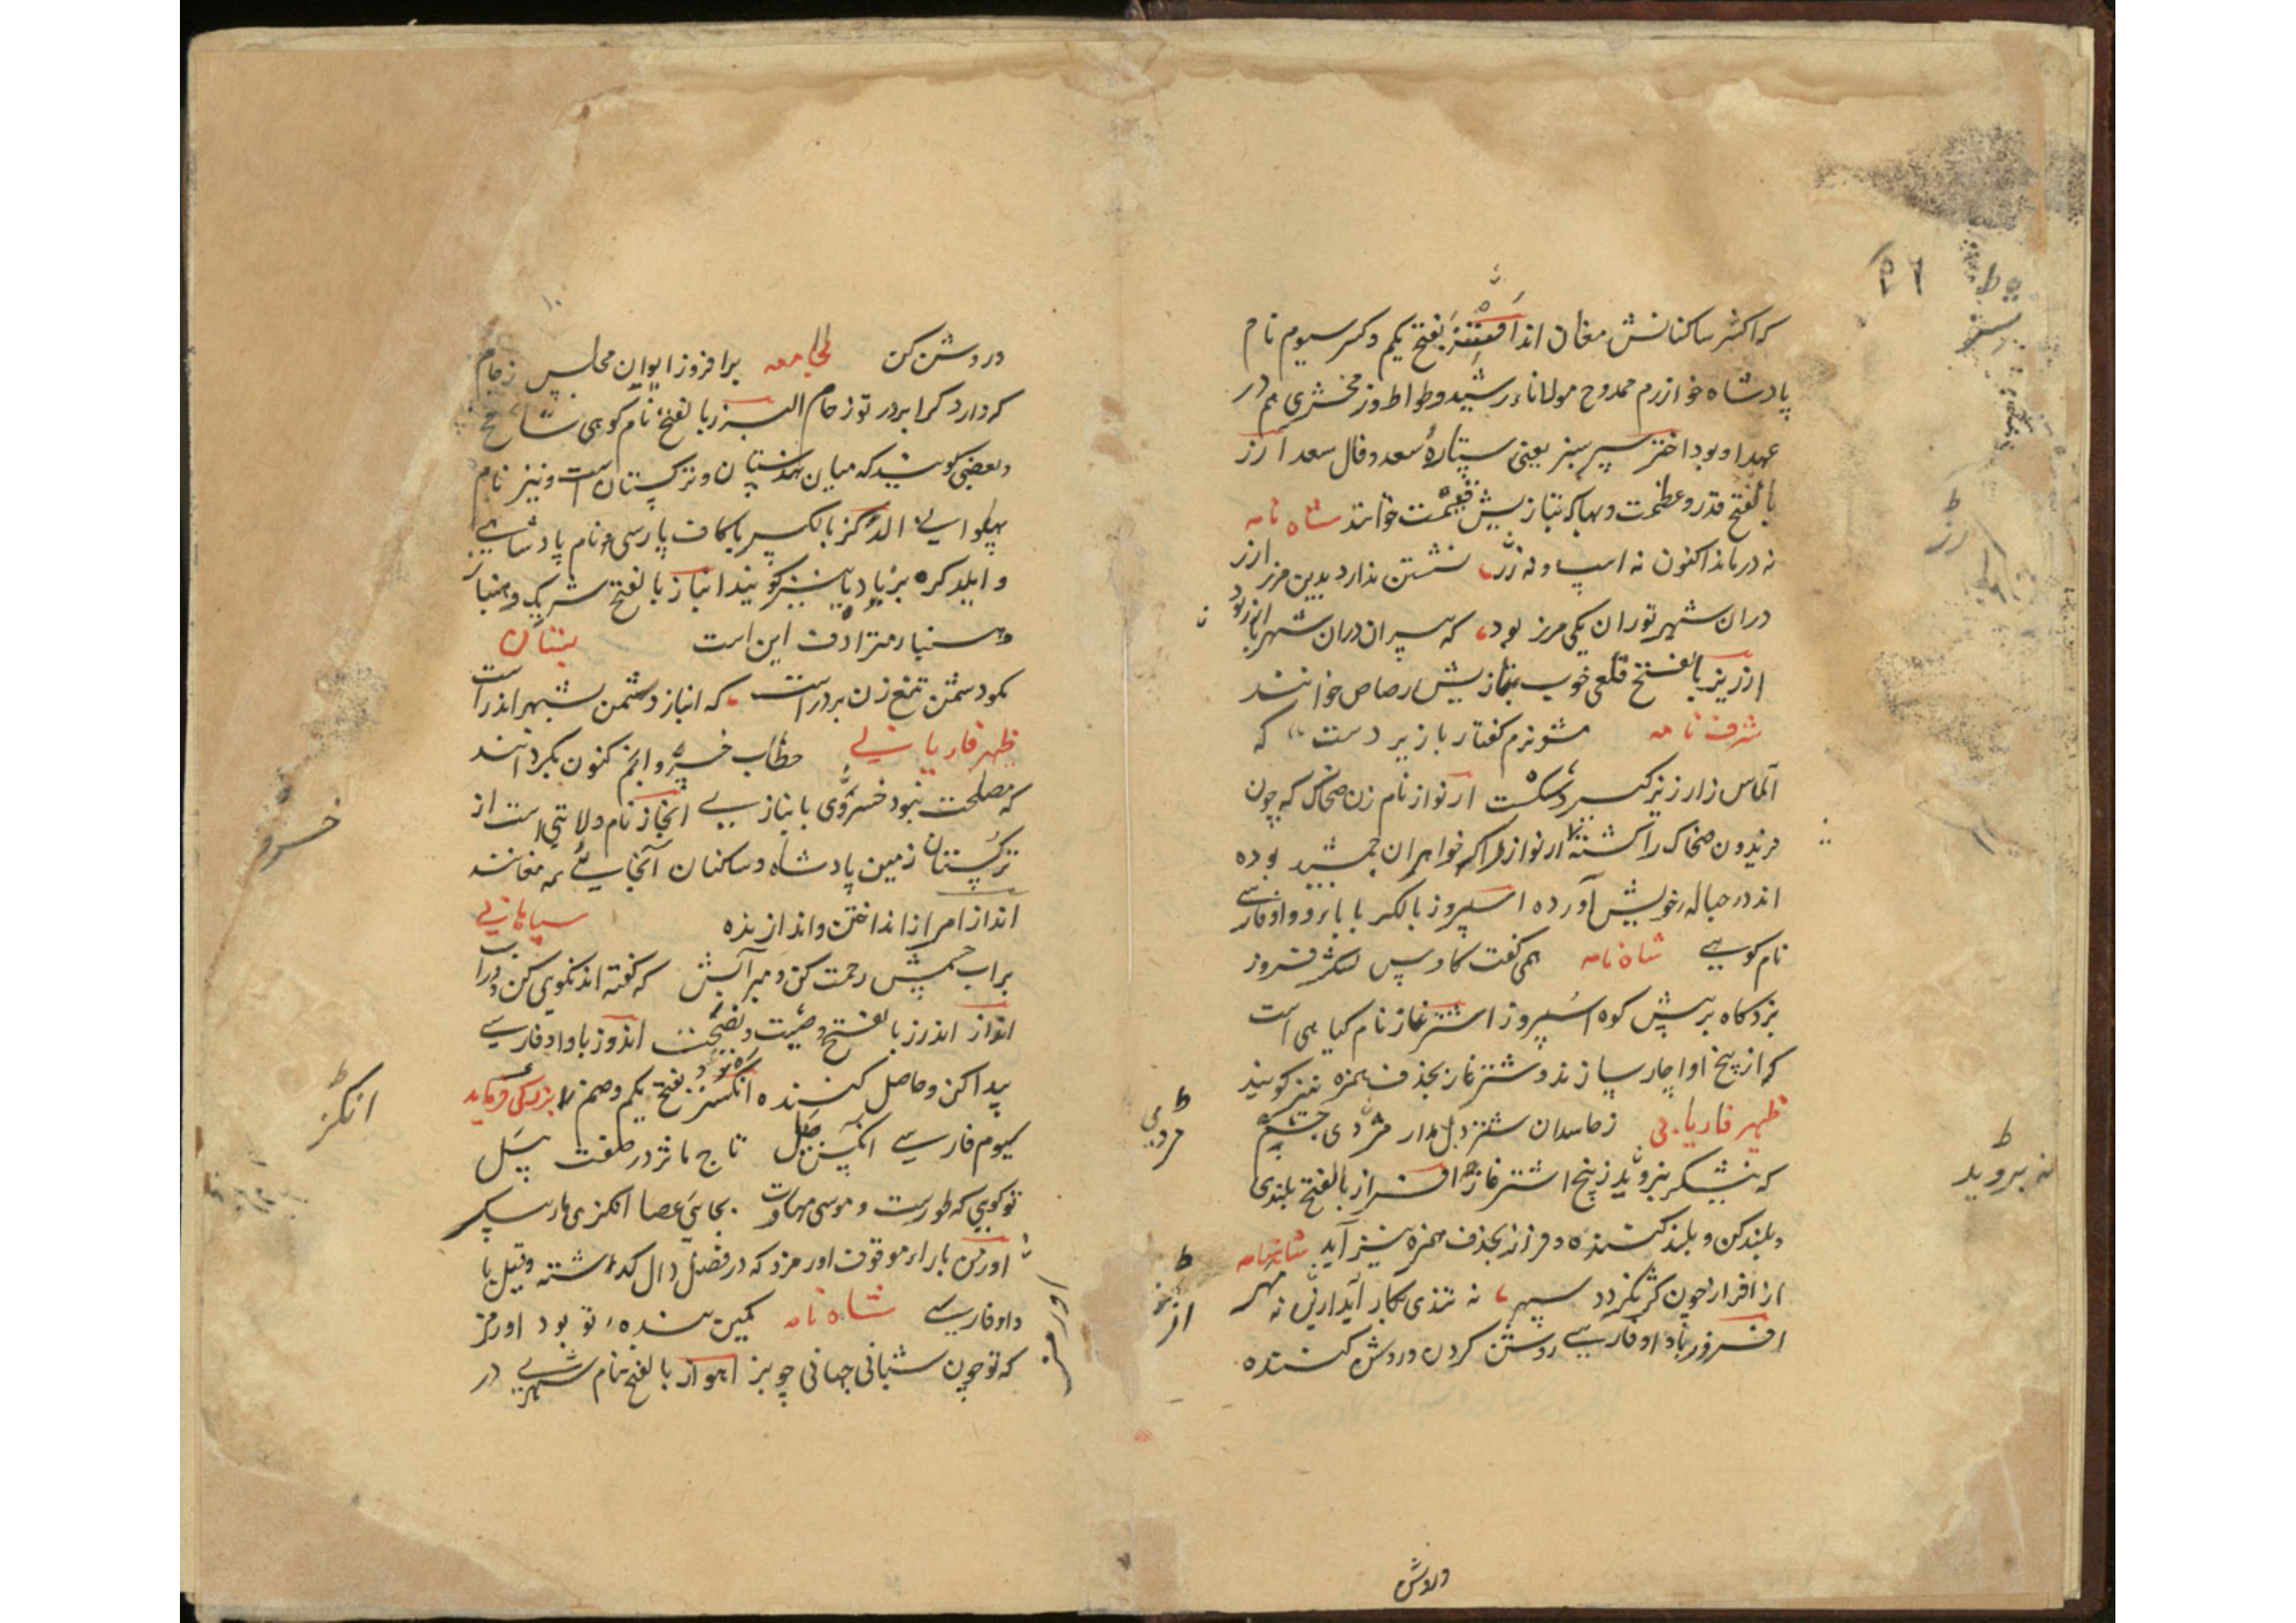 که اکثر ساکنانش مغان اند اتسز بفتح یکم و کسر سیوم نام
پادشاه خوارزم ممدوح مولاناء رشید وطواط و زمخشری هم در
عهد او بود اختر سبز یعنی ستارهٔ سعد و فال سعد ارز
بالفتح قدر و عظمت و بها که بتازیش قیمت خوانند شاه نامه
نه در ماند اکنون نه اسپ و نه زر نشستن ندارد بدین مرز ارز
دران شهر توران یکی مرز بود که سپران دران شهر با ارز بود
ارزیز بالفتح قلعی خوب بتازیش رصاص خوانند
شرف نامه مشو نرم گفتار با زیر دست که
الماس از ارزیز گیرد شکست ارنواز نام زن ضحاک که چون
فریدون ضحاک را کشته ارنواز را که خواهران جمشید بوده
اند در حباله خویش آورده اسپروز بالکسر با باء و واو فارسی
نام کوهی شاه نامه همی گفت کاوس لشکر فروز
بزد کاه بر پیش کوه اسپروز اشترغاز نام گیاهی است
که از بیخ او اچار سازند و شترغاز بحذف همزه نیز گویند
ظهیر فاریابی ز حاسدان شتر دل مدار مژدی چشم
که نیشکر نبروید ز بیخ اشترغاز افراز بالفتح بلندی
و بلند کن و بلند کننده و فراز بحذف همزه نیز آید شاهنامه
از افراز چون کژ گردد سپهر نه تندی بکار آید از بن نه مهر
افروز با واو فارسی روشن کردن و روشن کننده
وروشن
۲۹
ط
ارز
ط
نه بروید
ط
مردمی
ط
از
و روشن کن لجامعه برافروز ایوان مجلس ز جام
که دارد گرا بردر تو زحام البرز بالفتح نام کوهی شامخ
و بعضی گویند که میان هندستان و ترکستان است و نیز نام
پهلوانی الدکز بالکسر با کاف پارسی نام پادشاهی
و ایلدکزه بزیاد یا نیز گویند انباز بالفتح شریک و همتا
و هنباز مترادف این است بستان
بکو دشمن تیغ زن بر در است که انباز دشمن بشهر اندر است
ظهیر فاریابی خطاب خسرو انجم کنون بگردانند
که مصلحت نبود خسروی با نبازی انجاز نام ولایتی است از
ترکستان زمین پادشاه و ساکنان آنجایی همه مغانند
انداز امر از انداختن و اندازنده سپاهانی
بر آب چشمش رحمت کن و مبر آبش که گفته اند نکویی کن و در آب
انداز اندرز بالفتح وصیت و نصیحت اندوز با واو فارسی
پیدا کن و حاصل کننده انگز بفتح یکم و ضم
سیوم فارسی انگز پیل تاج ماثر در صفت پیل
تو گویی که طورست و موسی مهاوت بجای عصا انگزی مار پیکر
اورمز با راء موقوف اورمزد که در فصل دال گذشته و قیل با
واو فارسی شاه نامه کمین بنده تو بود اورمز
که تو چون شبانی جهانی چو بز اهواز بالفتح نام شهری در
۱۰
خسرو
ط
انگز
اورمز